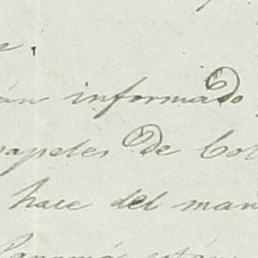 informado
papeles de Col
hace del man
Panamá están